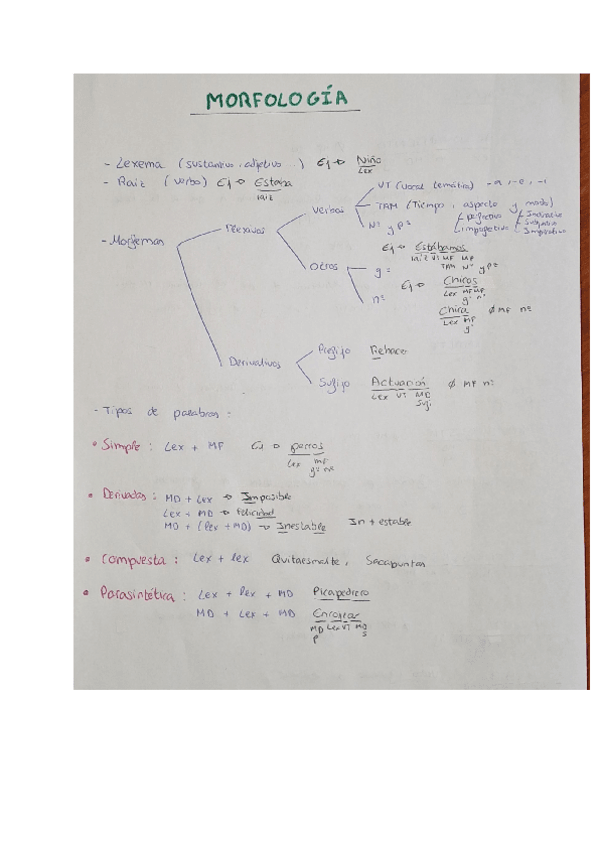 MORFOLOGÍA
- Lexema (sustantivo, adjetivo ...) Ej → Niño
Lex
- Raiz (verbo) Ej → Estaba
raiz
- Morfemas
Flexivos
Verbos
VT (vocal temática) -a, -e, -i
TAM (Tiempo, aspecto y modo)
perfectivo
imperfectivo
Indicativo
Subjuntivo
Imperativo
Nº y Pª
Ej → Estábamos
raiz VT MF MF
TAM Nº y Pª
Otros
gº
nº
Ej → Chicos
Lex MF MF
gº nº
Chica Ø MF nº
Lex MF
gº
Derivativos
Prefijo Rehacer
Sufijo Actuación Ø MF nº
Lex VT MD
Suf.
- Tipos de palabras:
• Simple: Lex + MF Ej → perros
Lex MF
gº nº
• Derivadas: MD + Lex → Imposible
Lex + MD → Felicidad
MD + (Lex + MD) → Inestable In + estable
• Compuesta: Lex + lex Quitaesmalte, Sacapuntas
• Parasintética: Lex + Lex + MD Picapedrero
MD + Lex + MD Enrojecer
MD Lex VT MD
P S